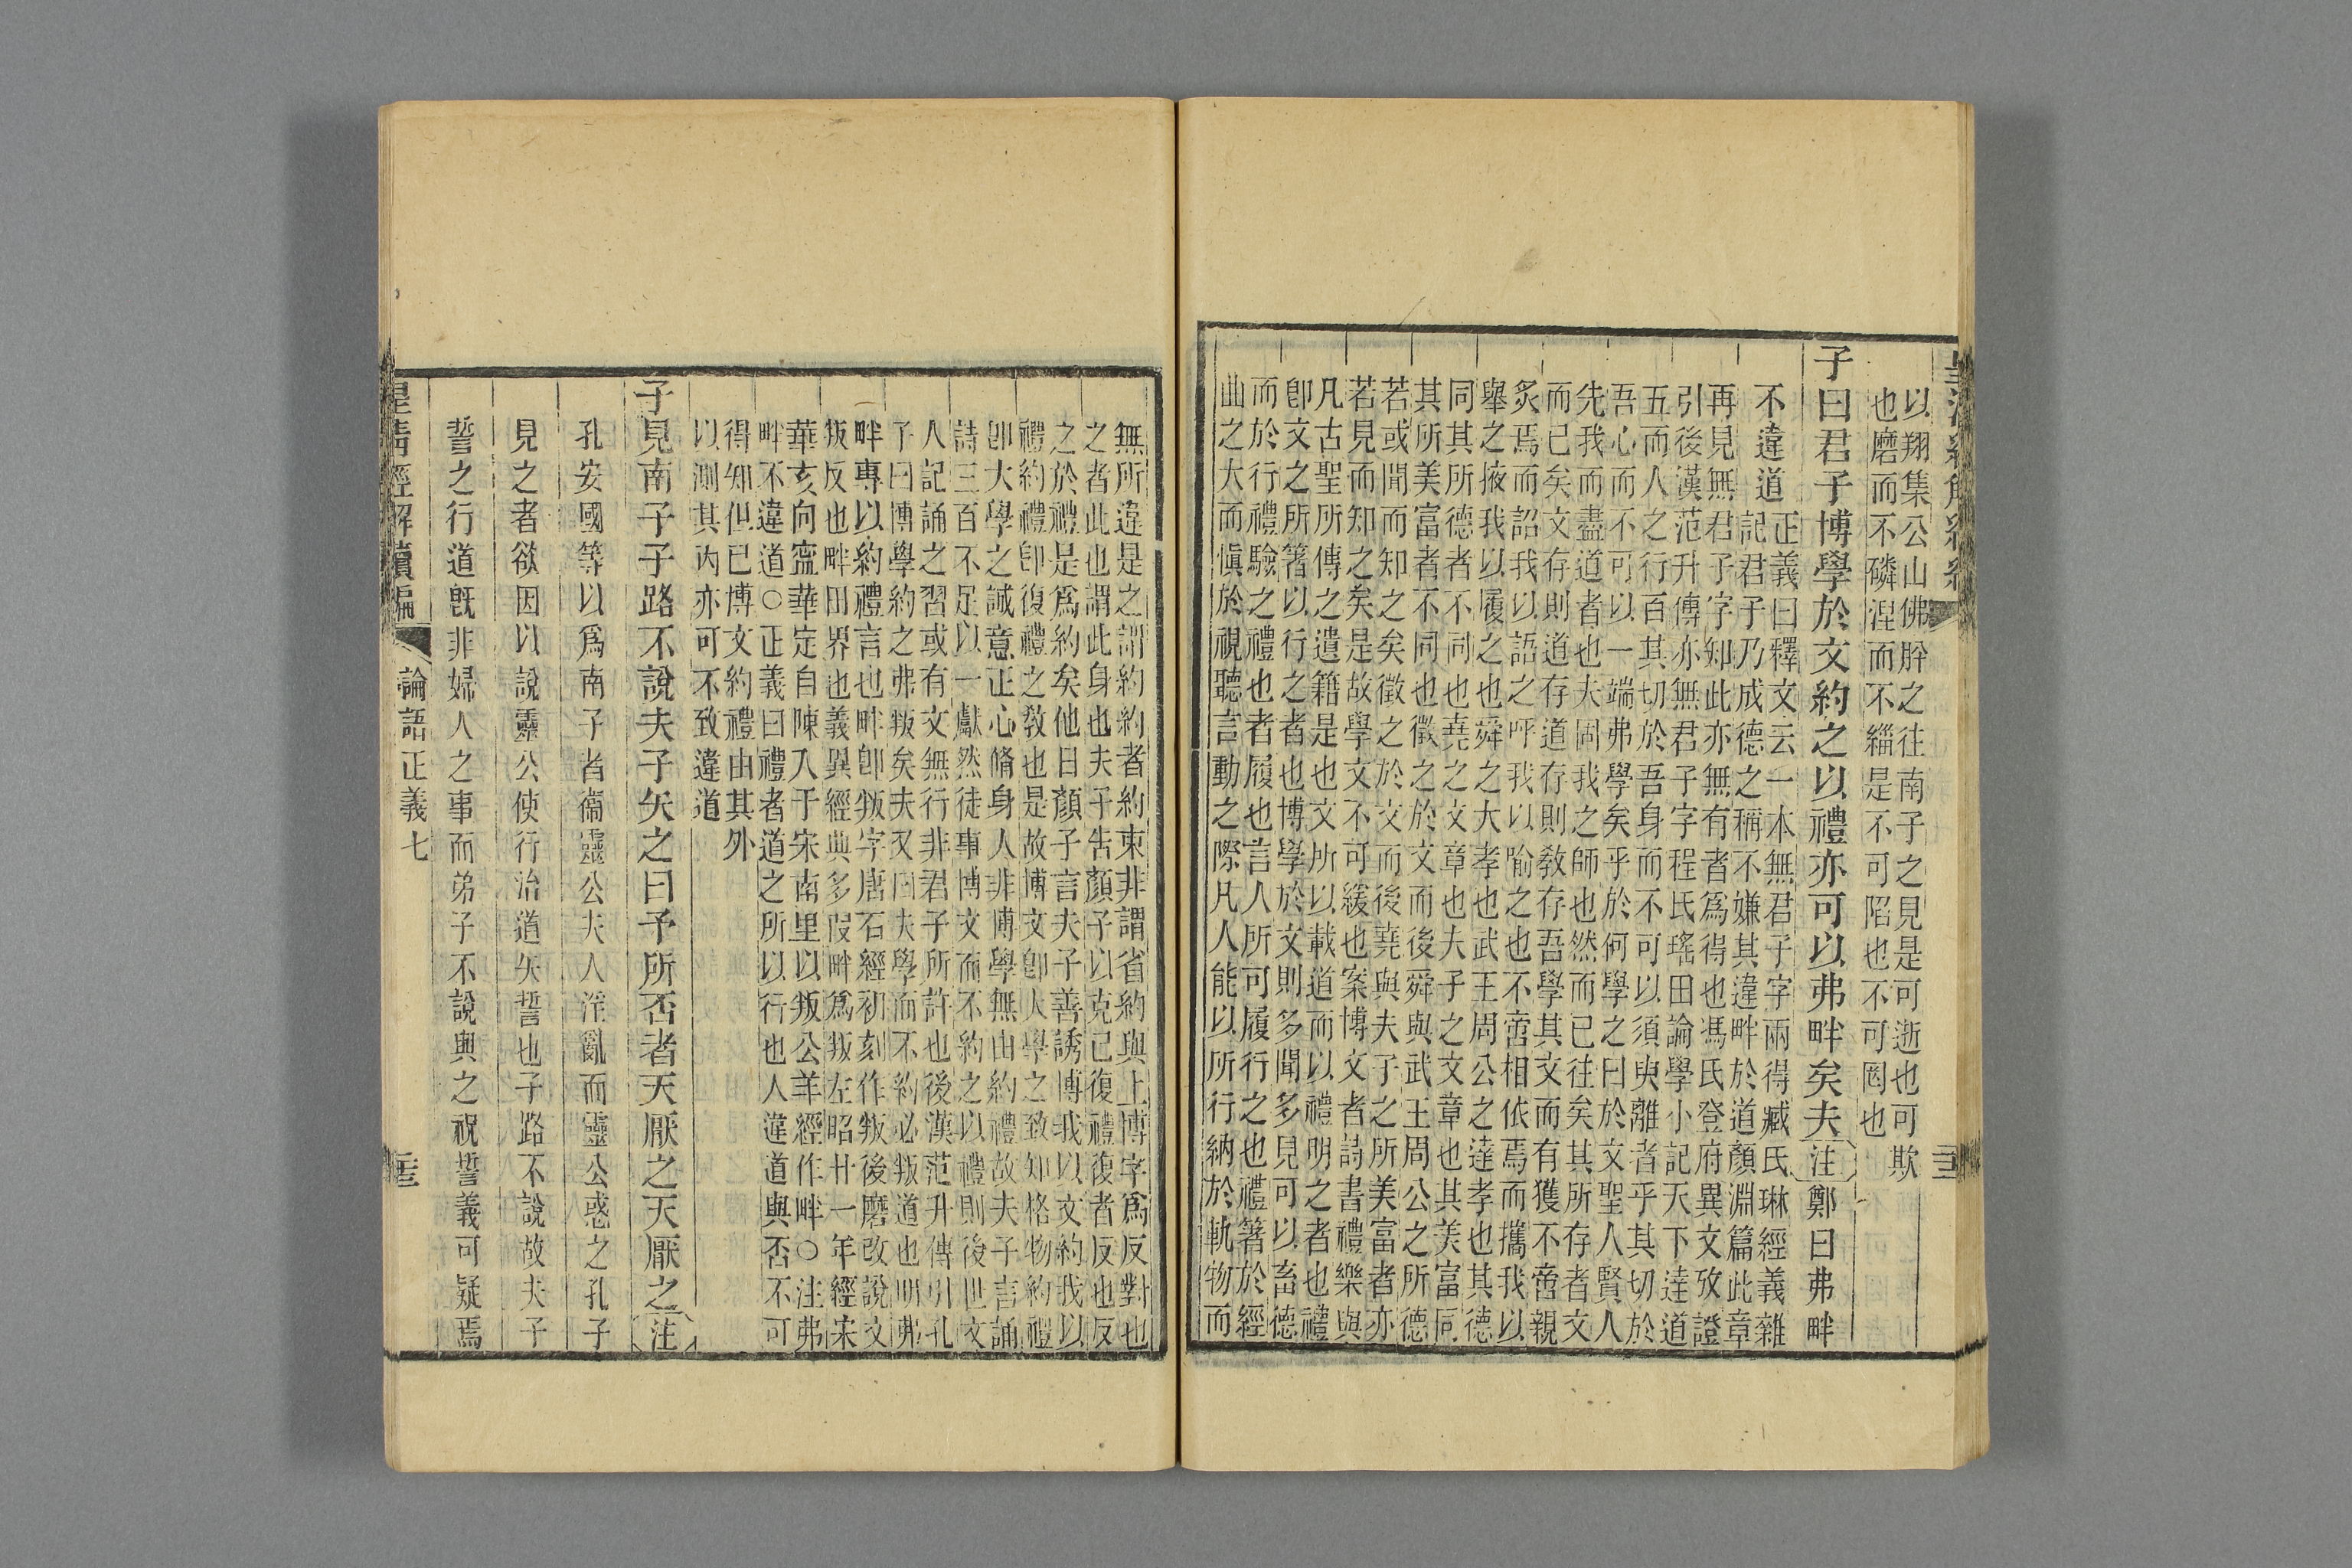 以翔集公山佛肸之往南子之見是可逝也可欺
也磨而不磷涅而不緇是不可陷也不可罔也
子曰君子博學於文約之以禮亦可以弗畔矣夫注鄭曰弗畔
不違道
正義曰釋文云一本無君子字兩得臧氏琳經義雜
記君子乃成德之稱不嫌其違畔於道顏淵篇此章
再見無君子字知此亦無有者爲得也馮氏登府異文攷證
引後漢范升傳亦無君子字程氏瑤田論學小記天下達道
五而人之行百其切於吾身而不可以須臾離者乎其切於
吾心而不可以一端弗學矣乎於何學之曰於文聖人賢人
先我而盡道者也夫固我之師也然而已往矣其所存者文
而已矣文存則道存道存則教存吾學其文而有獲不啻親
炙焉而詔我以語之呼我以喻之也不啻相依焉而攜我以
舉之掖我以履之也舜之大孝也武王周公之達孝也其德
同其所德者不同也堯之文章也夫子之文章也其美富同
其所美富者不同也徵之於文而後舜與武王周公之所德
若或聞而知之矣徵之於文而後堯與夫子之所美富者亦
若見而知之矣是故學文不可緩也案博文者詩書禮樂與
凡古聖所傳之遺籍是也文所以載道而以禮明之者也禮
卽文之所著以行之者也博學於文則多聞多見可以畜德
而於行禮驗之禮也者履也言人所可履行之也禮著於經
曲之大而愼於視聽言動之際凡人能以所行納於軌物而
無所違是之謂約約者約束非謂省約與上博字爲反對也
之者此也謂此身也夫子告顏子以克己復禮復者反也反
之於禮是爲約矣他日顏子言夫子善誘博我以文約我以
禮約禮卽復禮之教也是故博文卽大學之致知格物約禮
卽大學之誠意正心脩身人非博學無由約禮故夫子言誦
詩三百不足以一獻然徒事博文而不約之以禮則後世文
人記誦之習或有文無行非君子所許也後漢范升傳引孔
子曰博學約之弗叛矣夫又曰夫學而不約必叛道也明弗
畔專以約禮言也畔卽叛字唐石經初刻作叛後磨改說文
叛反也畔田界也義異經典多叚畔爲叛左昭廿一年經宋
華亥向寍華定自陳入于宋南里以叛公羊經作畔○注弗
畔不違道○正義曰禮者道之所以行也人違道與否不可
得知但已博文約禮由其外
以測其內亦可不致違道
子見南子子路不說夫子矢之曰予所否者天厭之天厭之注
孔安國等以爲南子者衞靈公夫人淫亂而靈公惑之孔子
見之者欲因以說靈公使行治道矢誓也子路不說故夫子
誓之行道旣非婦人之事而弟子不說與之祝誓義可疑焉
皇清經解續編
論語正義七